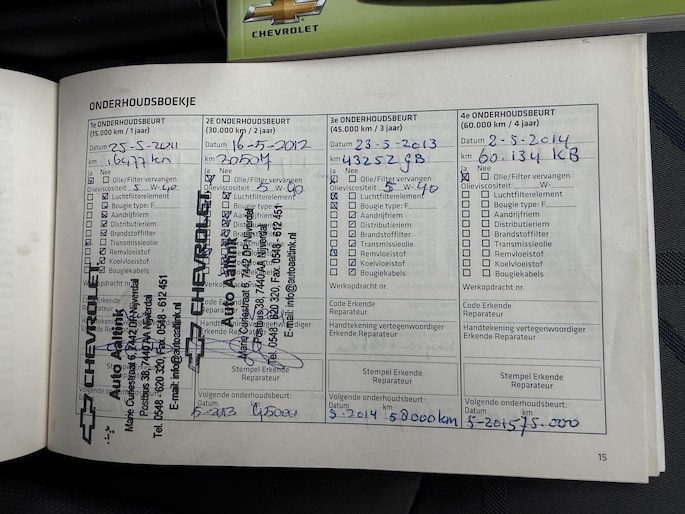 CHEVROLET
ONDERHOUDSBOEKJE
1e ONDERHOUDSBEURT
(15.000 km / 1 jaar)
Datum 25-5-2011
km 16477 km
Ja Nee
Olie/Filter vervangen
Olieviscositeit 5 W-40
Luchtfilterelement
Bougie type: F
Aandrijfriem
Distributieriem
Brandstoffilter
Transmissieolie
Remvloeistof
Koelvloeistof
Bougiekabels
CHEVROLET
Auto Aaltink
Marie Curiestraat 6, 7442 DP Nijverdal
Postbus 38, 7440 AA Nijverdal
Tel. 0548 - 620 320, Fax. 0548 - 612 451
E-mail: info@autoaaltink.nl
2E ONDERHOUDSBEURT
(30.000 km / 2 jaar)
Datum 16-5-2012
km 30507
Ja Nee
Olie/Filter vervangen
Olieviscositeit 5 W-40
Luchtfilterelement
Bougie type: F
Aandrijfriem
Distributieriem
Brandstoffilter
Transmissieolie
Remvloeistof
Koelvloeistof
Bougiekabels
CHEVROLET
Auto Aaltink
Marie Curiestraat 6, 7442 DP Nijverdal
Postbus 38, 7440 AA Nijverdal
Tel. 0548 - 620 320, Fax. 0548 - 612 451
E-mail: info@autoaaltink.nl
Stempel Erkende
Reparateur
Volgende onderhoudsbeurt:
Datum km
5-2013 45000
3e ONDERHOUDSBEURT
(45.000 km / 3 jaar)
Datum 23-5-2013
km 43252 GB
Ja Nee
Olie/Filter vervangen
Olieviscositeit 5 W-40
Luchtfilterelement
Bougie type: F
Aandrijfriem
Distributieriem
Brandstoffilter
Transmissieolie
Remvloeistof
Koelvloeistof
Bougiekabels
Werkopdracht nr.
Code Erkende
Reparateur
Handtekening vertegenwoordiger
Erkende Reparateur
Stempel Erkende
Reparateur
Volgende onderhoudsbeurt:
Datum km
5-2014 58000km
4e ONDERHOUDSBEURT
(60.000 km / 4 jaar)
Datum 2-5-2014
km 60.134 KB
Ja Nee
Olie/Filter vervangen
Olieviscositeit W-
Luchtfilterelement
Bougie type: F
Aandrijfriem
Distributieriem
Brandstoffilter
Transmissieolie
Remvloeistof
Koelvloeistof
Bougiekabels
Werkopdracht nr.
Code Erkende
Reparateur
Handtekening vertegenwoordiger
Erkende Reparateur
Stempel Erkende
Reparateur
Volgende onderhoudsbeurt:
Datum km
5-2015 75.000
15